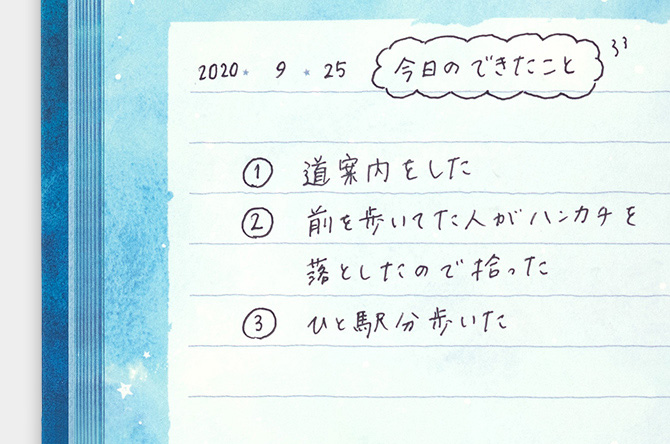 2020 9 25 今日のできたこと
① 道案内をした
② 前を歩いてた人がハンカチを
落としたので拾った
③ ひと駅分歩いた